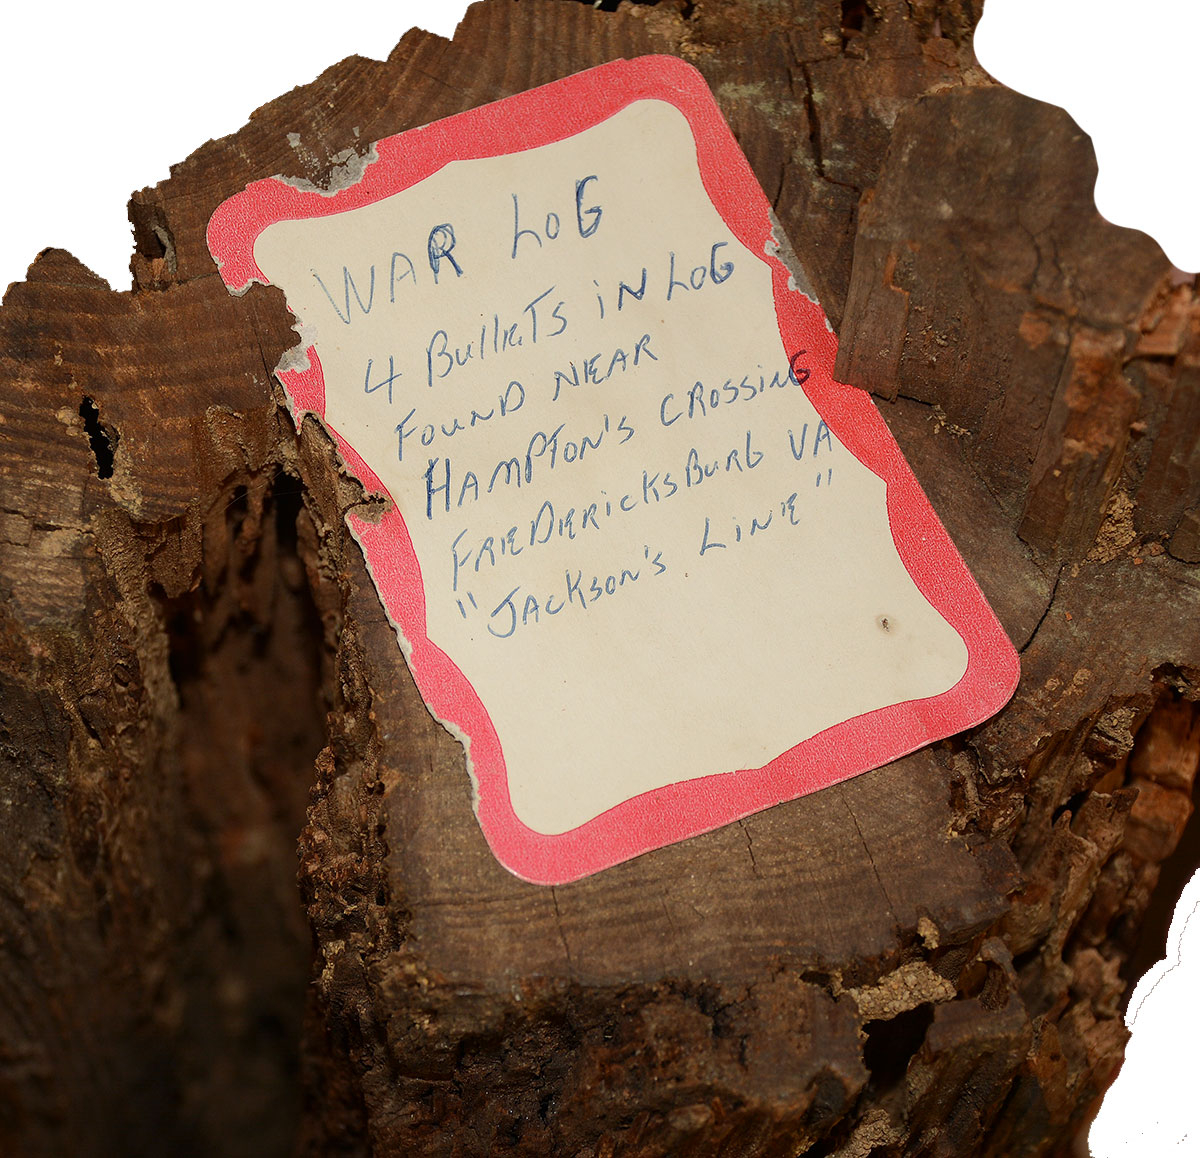 WAR LOG
4 BullETS iN LOG
FOUND NEAR
HAMPTON'S CROSSING
FREDERICKSBURG VA
"JACKSON'S LINE"